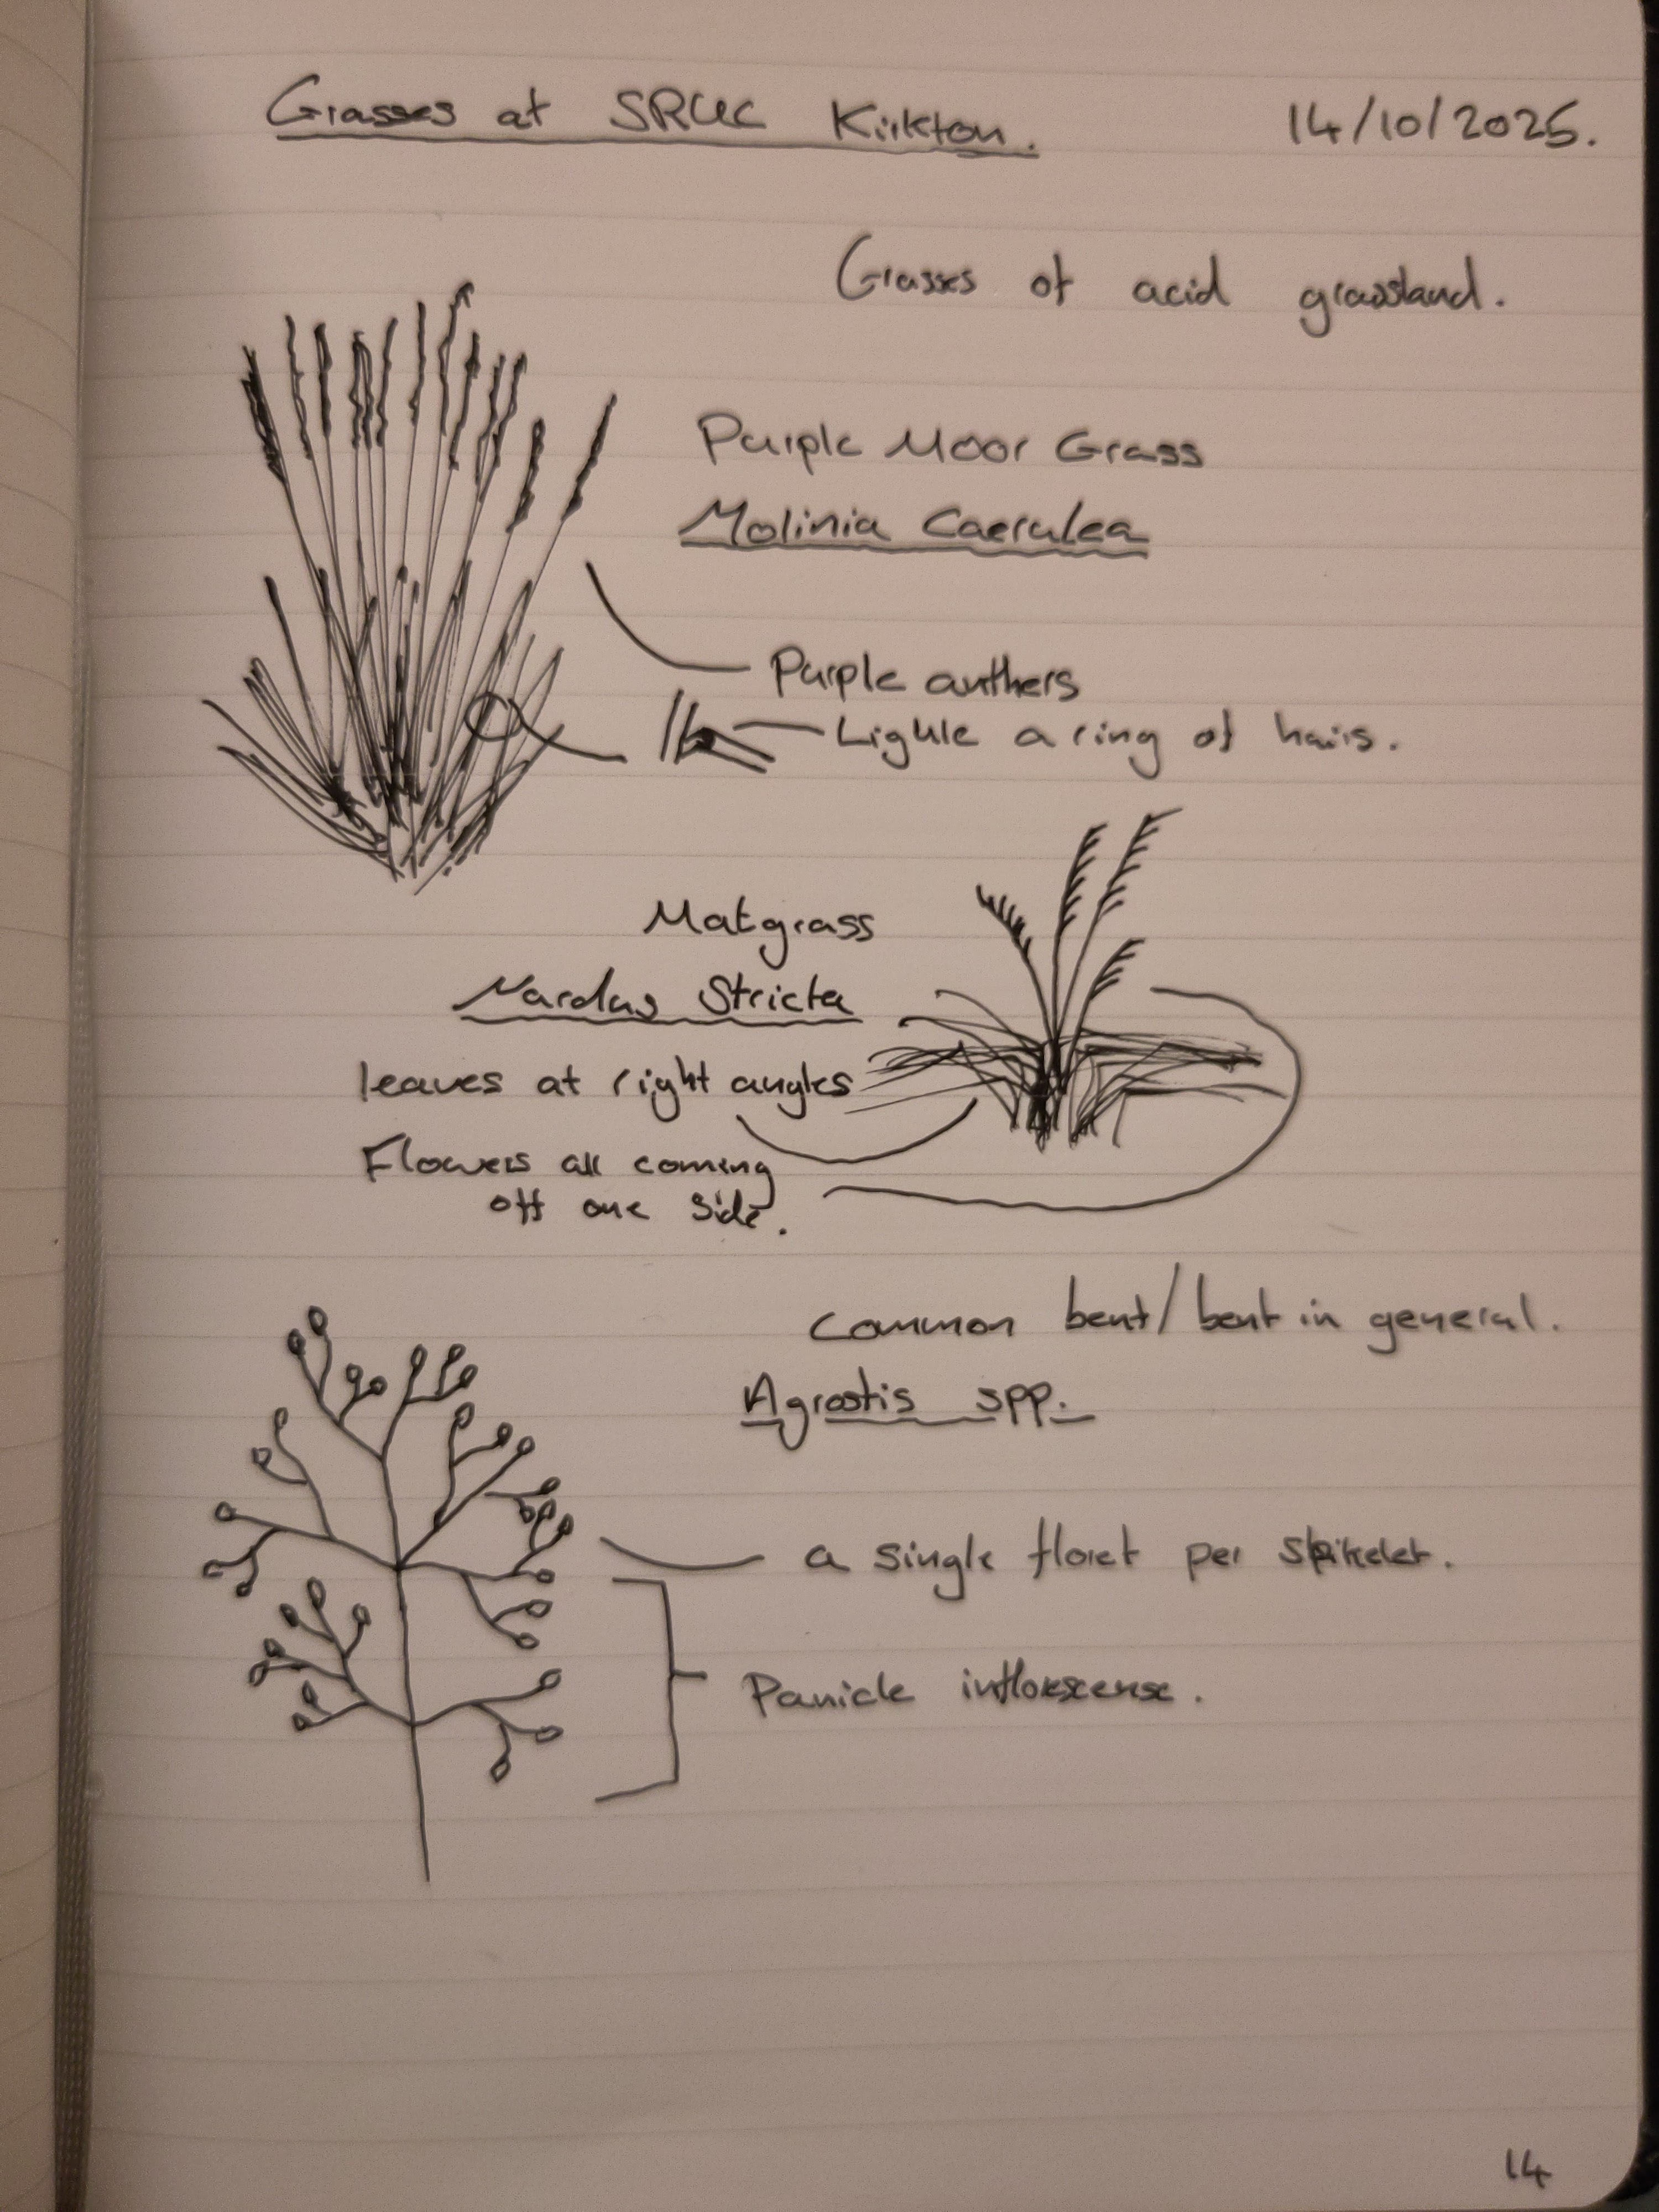 Grasses at SRUC Kirkton.
14/10/2025.
Grasses of acid grassland.
Purple Moor Grass
Molinia Caerulea
Purple anthers
a ring of hairs.
Matgrass
Nardus Stricta
leaves at right angles
Flowers all coming
off one side.
Common bent/bent in general.
Agrostis spp.
a single floret per spikelet.
Panicle
14